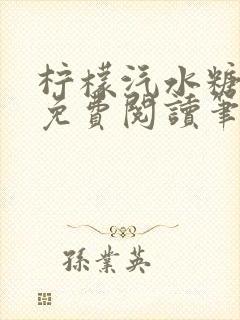 柠檬汽水糖
免費閱讀筆
孫業英